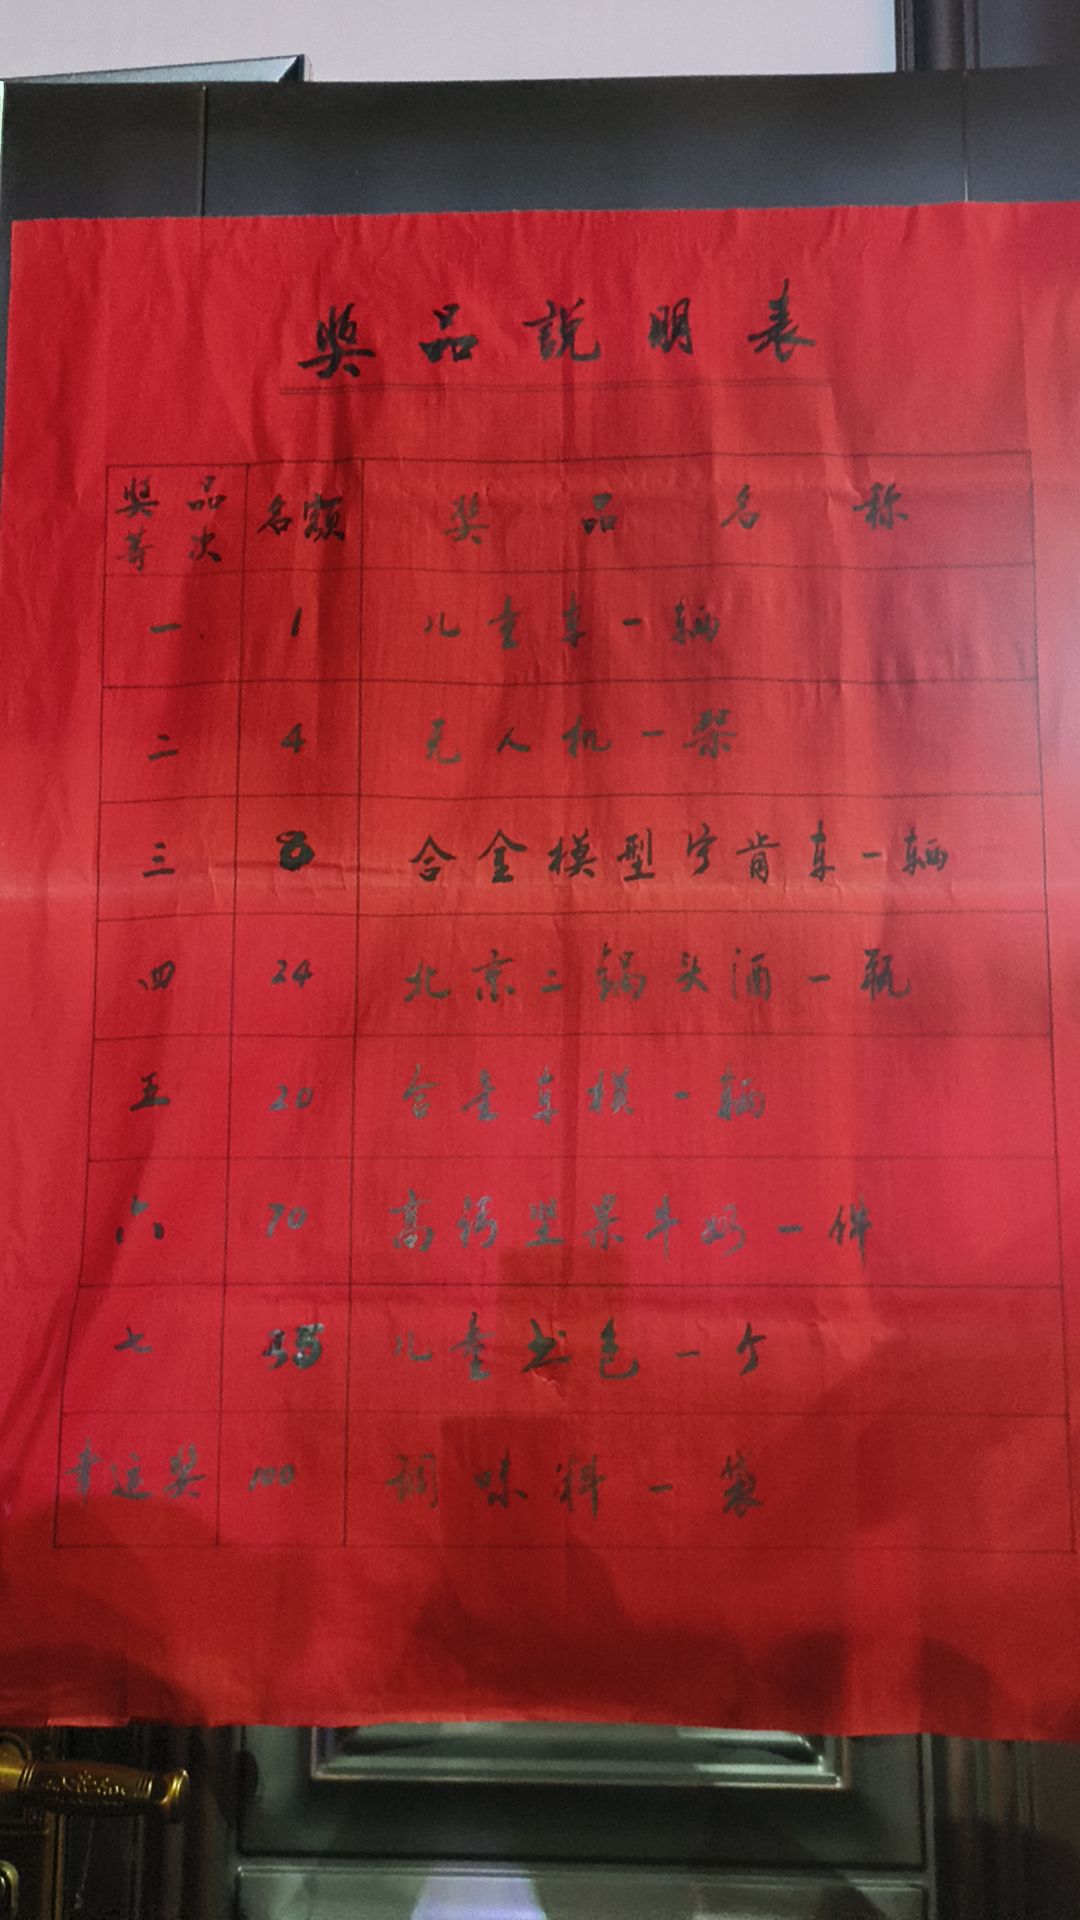 奖品説明表
奖品等次 名额 奖品名称
一 1 儿童车一辆
二 4 无人机一架
三 8 合金模型宁肯车一辆
四 24 北京二锅头酒一瓶
五 20 合金车模一辆
六 70 高钙坚果牛奶一件
七 儿童书包一个
幸运奖 100 调味料一袋